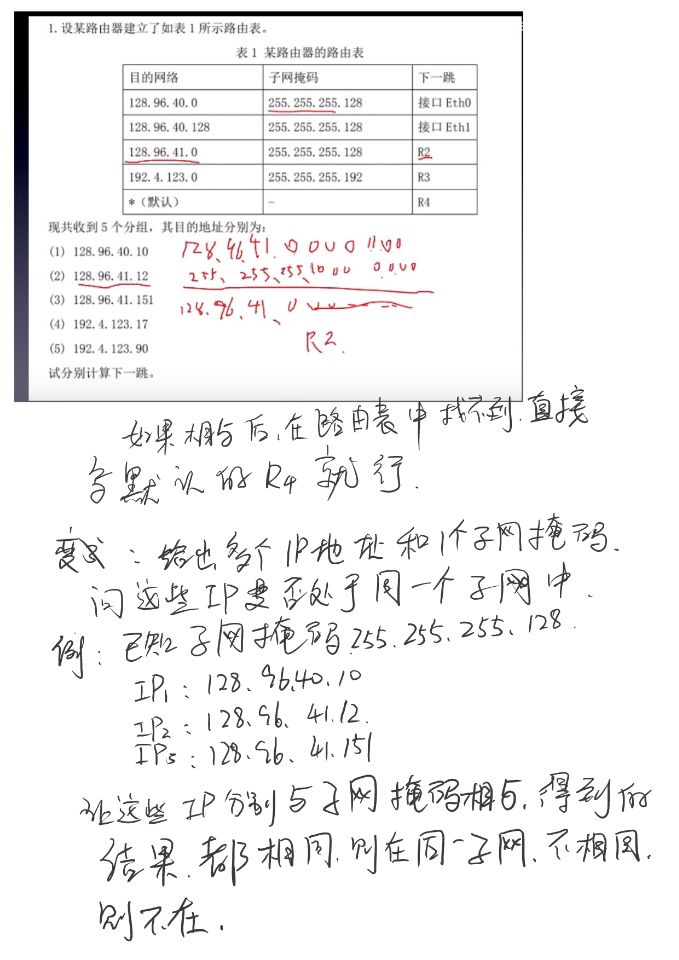 1. 设某路由器建立了如表 1 所示路由表。
表 1 某路由器的路由表
目的网络 子网掩码 下一跳
128.96.40.0 255.255.255.128 接口 Eth0
128.96.40.128 255.255.255.128 接口 Eth1
128.96.41.0 255.255.255.128 R2
192.4.123.0 255.255.255.192 R3
*（默认） - R4
现共收到 5 个分组，其目的地址分别为：
(1) 128.96.40.10
(2) 128.96.41.12
(3) 128.96.41.151
(4) 192.4.123.17
(5) 192.4.123.90
试分别计算下一跳。
128.96.41.0 0 0 0 1100
255.255.255.1000 0000
128.96.41.0
R2.
如果相与后,在路由表中找不到,直接
写默认的R4就行.
变式：给出多个IP地址和1个子网掩码.
问这些IP是否处于同一个子网中.
例：已知子网掩码255.255.255.128.
IP₁：128.96.40.10
IP₂：128.96.41.12.
IP₃：128.96.41.151
让这些IP分别与子网掩码相与,得到的
结果.都相同,则在同一子网,不相同.
则不在.